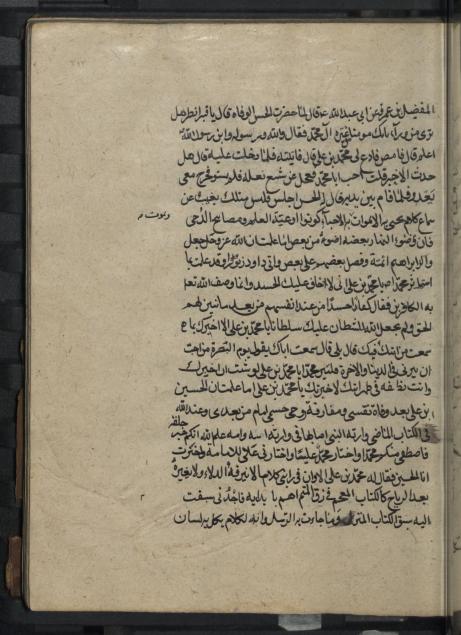 المفضل بن عمر عن ابی عبد الله ع قال لما حضرت الحسن الوفاه قال یا قنبر انظر هل
تری من وراء بابک مومنا من غیر آل محمد فقال الله ورسوله وابن رسوله
اعلم قال فامض فادع لی محمد بن علی قال فاتیته فلما دخلت علیه قال هل
حدث الا خیر قلت اجب ابا محمد فعجل عن شسع نعله فلم یسوه فخرج معی
یعدو فلما قام بین یدیه قال له الحسن اجلس فلیس مثلک یغیب عن
سماع کلام یحیی به الاموات به الاحیا کونوا اوعیه العلم ومصابیح الدجی
ویموت
فان ضوء النهار بعضه اضوء من بعض اما علمت ان الله عز وجل جعل
ولد ابراهیم ائمة وفضل بعضهم علی بعض واتی داود زبورا وقد علمت بما
استاثر محمد ص یا محمد بن علی انی لا اخاف علیک الحسد وانما وصف الله تعالی
به الکافرین فقال کفارا حسدا من عند انفسهم من بعد ما تبین لهم
الحق ولم یجعل الله للشیطان علیک سلطانا یا محمد بن علی الا اخبرک بما
سمعت من ابیک فیک قال بلی قال سمعت اباک یقول یوم البصرة من احب
ان یبرنی فی الدنیا والاخرة فلیبر محمدا یا محمد بن علی لو شئت ان اخبرک
وانت نطفه فی ظهر ابیک لاخبرتک یا محمد بن علی اما علمت ان الحسین
ابن علی بعد وفاة نفسی ومفارقة روحی جسمی امام من بعدی وعند الله
فی الکتاب الماضی وراثة النبی اصابها فی وراثة ابیه وامه علم الله انکم خیر
خلقه
فاصطفی منکم محمدا واختار محمد علیا واختارنی علی للامامه واخترت
انا الحسین فقال له محمد بن علی الا وان فی راسی کلاما لا تنزفه الدلاء ولا تغیره
بعد الریاح کالکتاب المعجم فی الرق المنمنم اهم بابدایه فاجدنی سبقت
الیه سبق الکتاب المنزل وما جاءت به الرسل وانه لکلام یکل به لسان